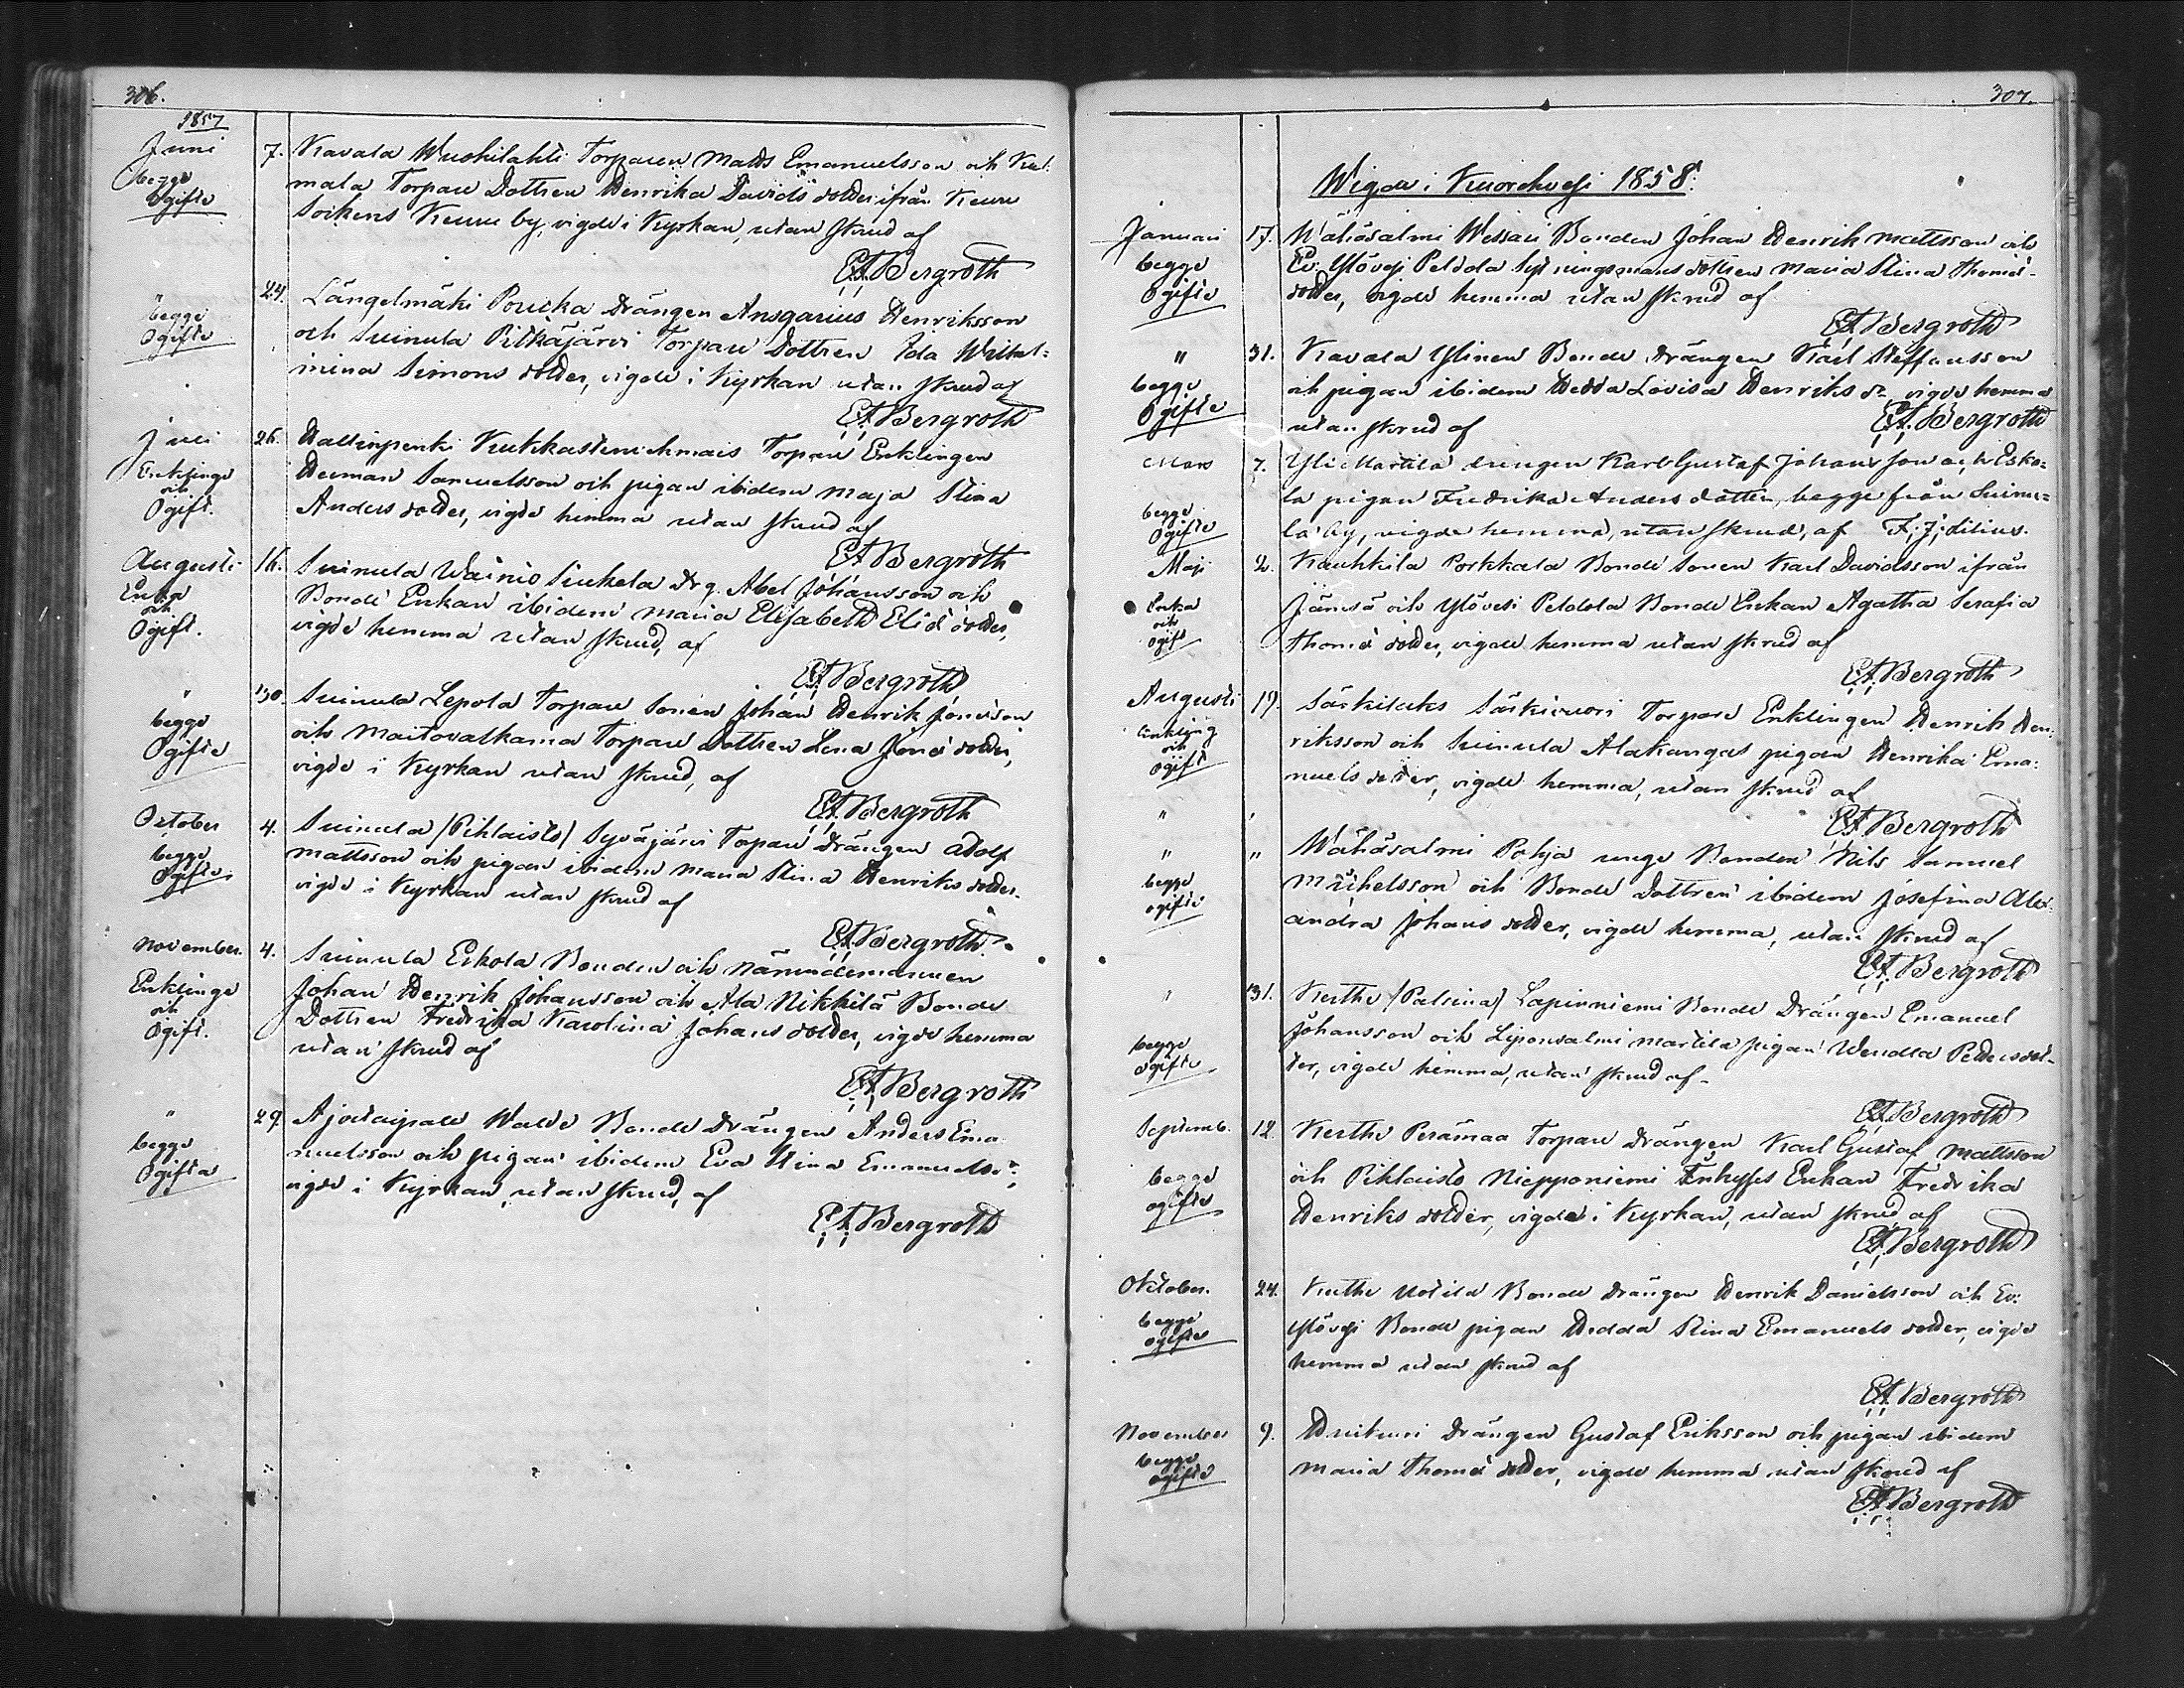 306.
1857
Juni 7. Kavala Wuohilahti Torparen Matts Emanuelsson och
begge mala Torpare Dottren Henrika Davids dotter ifrån Keuru
Ogifte Sockens Keuru by, vigde i Kyrkan, utan skrud af
E.A. Bergroth
" 24. Längelmäki Poucka Drängen Ansgarius Henriksson
begge och Suinula Pitkäjärvi Torpare Dottren Ida Wilhel-
Ogifte mina Simons dotter, vigde i Kyrkan utan skrud af
E.A. Bergroth
Juli 26. Hallinpenki Kukkastenichmais Torpare Enklingen
Enklinge Herman Samuelsson och pigan ibidem Maja Stina
och Anders dotter, vigde hemma utan skrud af
Ogift.
E.A. Bergroth
Augusti 16. Suinula Wainio Siukola Drg. Abel Johansson och
Enka Bonde Enkan ibidem Maria Elisabeth Eliæ dotter,
och vigde hemma utan skrud, af
Ogift.
E.A. Bergroth
" 30. Suinula Lepola Torpare Sonen Johan Henrik Jonæson
begge och Maitovalkama Torpare Dottren Lena Jonæ dotter,
Ogifte vigde i Kyrkan utan skrud, af
E.A. Bergroth
October 4. Suinula /Pihlaisto/ Syväjärvi Torpare Drängen Adolf
begge Mattsson och pigan ibidem Maria Stina Henriks dotter.
Ogifte vigde i Kyrkan utan skrud af
E.A. Bergroth.
November. 4. Suinula Eskola Bonden och Nämndemannen
Enklinge Johan Henrik Johansson och Ala Nikkilä Bonde
och Dottren Fredrika Karolina Johans dotter, vigde hemma
Ogift. utan skrud af
E.A. Bergroth
" 29. Ajostaipale Walde Bonde Drängen Anders Ema-
begge nuelsson och pigan ibidem Eva Stina Emanuelsdr,
Ogifta vigde i Kyrkan, utan skrud, af
E.A. Bergroth
307.
Wigde i Kuorehvesi 1858.
Januari 17. Wähäsalmi Wessari Bonden Johan Henrik Mattsson och
begge Ev: Ylövesi Peldola Sytningsmans dottren Maria Stina Thomæ-
Ogifte dotter, vigde hemma utan skrud af
E.A. Bergroth
" 31. Kavala Ylinen Bonde Drängen Karl Steffansson
begge och pigan ibidem Hedda Lovisa Henriks dr vigde hemma
Ogifte utan skrud af E.A. Bergroth
Mars 7. Yli Martila drengen Karl Gustaf Johansson och Esko-
begge la pigan Fredrika Anders dotter, begge från Suinu-
Ogifte la by, vigde hemma, utan skrud, af F. J. Lilius.
Maji 2. Kauhkila Porkkala Bonde Sonen Karl Davidsson ifrån
Enka Jämsä och Ylövesi Peldola Bonde Enkan Agatha Serafia
och Thomæ dotter, vigde hemma utan skrud af
ogift
E.A. Bergroth
Augusti 19. Särkilaks Särkivuori Torpare Enklingen Henrik Hen-
Enkling riksson och Suinula Alakangas pigan Henrika Ema-
och nuels dotter, vigde hemma, utan skrud af
ogift
E.A. Bergroth
" " Wähäsalmi Pohja unge Bonden Nils Samuel
begge Michelsson och Bonde Dottren ibidem Josefina Alex-
ogifte andra Johans dotter, vigde hemma, utan skrud af
E.A. Bergroth
" 31. Kerthe /Palsina/ Lapinniemi Bonde Drängen Emanuel
begge Johansson och Liponsalmi Martila pigan Wendla Pettersdot-
ogifte ter, vigde hemma, utan skrud af
E.A. Bergroth
Septemb. 12. Kerthe Perämaa Torpare Drängen Karl Gustaf Mattsson
begge och Pihlaisto Niepponiemi Inhyses Enkan Fredrika
ogifte Henriks dotter, vigde i Kyrkan, utan skrud af
E.A. Bergroth
Oktober. 24. Kerthe Uotila Bonde Drängen Henrik Danielsson och Ev:
begge Ylövesi Bonde pigan Hedda Stina Emanuels dotter, vigde
ogifte hemma utan skrud af
E.A. Bergroth
November 9. Drängen Gustaf Eriksson och pigan ibidem
begge Maria Thomæ dotter, vigde hemma utan skrud af
ogifte
E.A. Bergroth